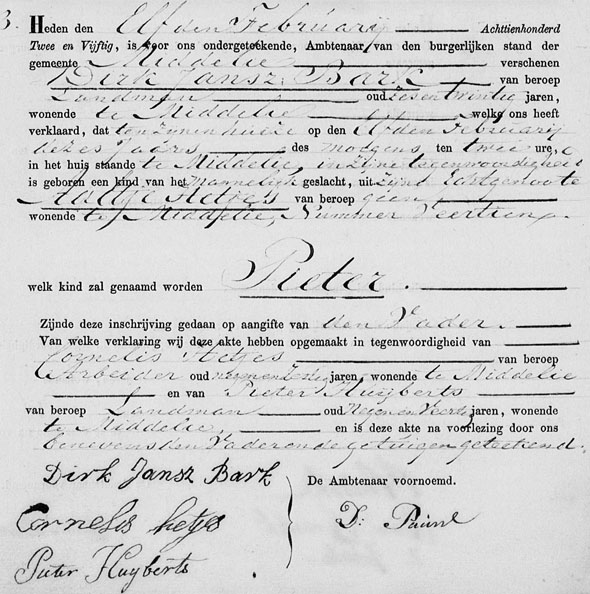 3.
Heden den Elfden Februarij Achttienhonderd
Twee en Vijftig, is voor ons ondergeteekende, Ambtenaar van den burgerlijken stand der
gemeente Middelie verschenen
Dirk Jansz: Bark van beroep
Landman oud zesentwintig jaren,
wonende te Middelie welke ons heeft
verklaard, dat ten zijnen huize op den Elfden Februarij
dezes Jaars des morgens ten twee ure,
in het huis staande te Middelie, in zijne tegenwoordigheid
is geboren een kind van het Mannelijk geslacht, uit zijne Echtgenoote
Aaltje Hetjes van beroep geen
wonende te Middelie, Nummer Veertien.
welk kind zal genaamd worden Pieter.
Zijnde deze inschrijving gedaan op aangifte van den Vader.
Van welke verklaring wij deze akte hebben opgemaakt in tegenwoordigheid van
Cornelis Hetjes van beroep
Arbeider oud jaren, wonende te Middelie
en van Pieter Huijberts
van beroep Landman oud Negen en Veertig jaren, wonende
te Middelie, en is deze akte na voorlezing door ons
benevens den Vader en de getuigen geteekend.
Dirk Jansz Bark
De Ambtenaar voornoemd.
Cornelis hetjes
D:
Pieter Huyberts